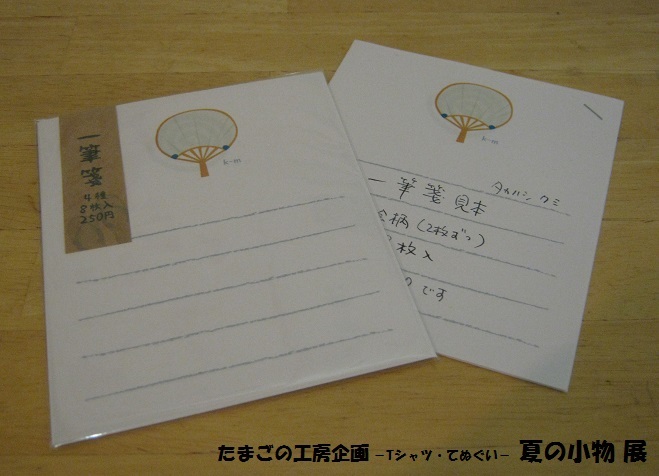 一筆箋
4種
8枚入
250円
k-m
k-m
タカハシ クミ
一筆箋 見本
絵柄(2枚ずつ)
枚入
です
たまごの工房企画 –Tシャツ・てぬぐい– 夏の小物 展